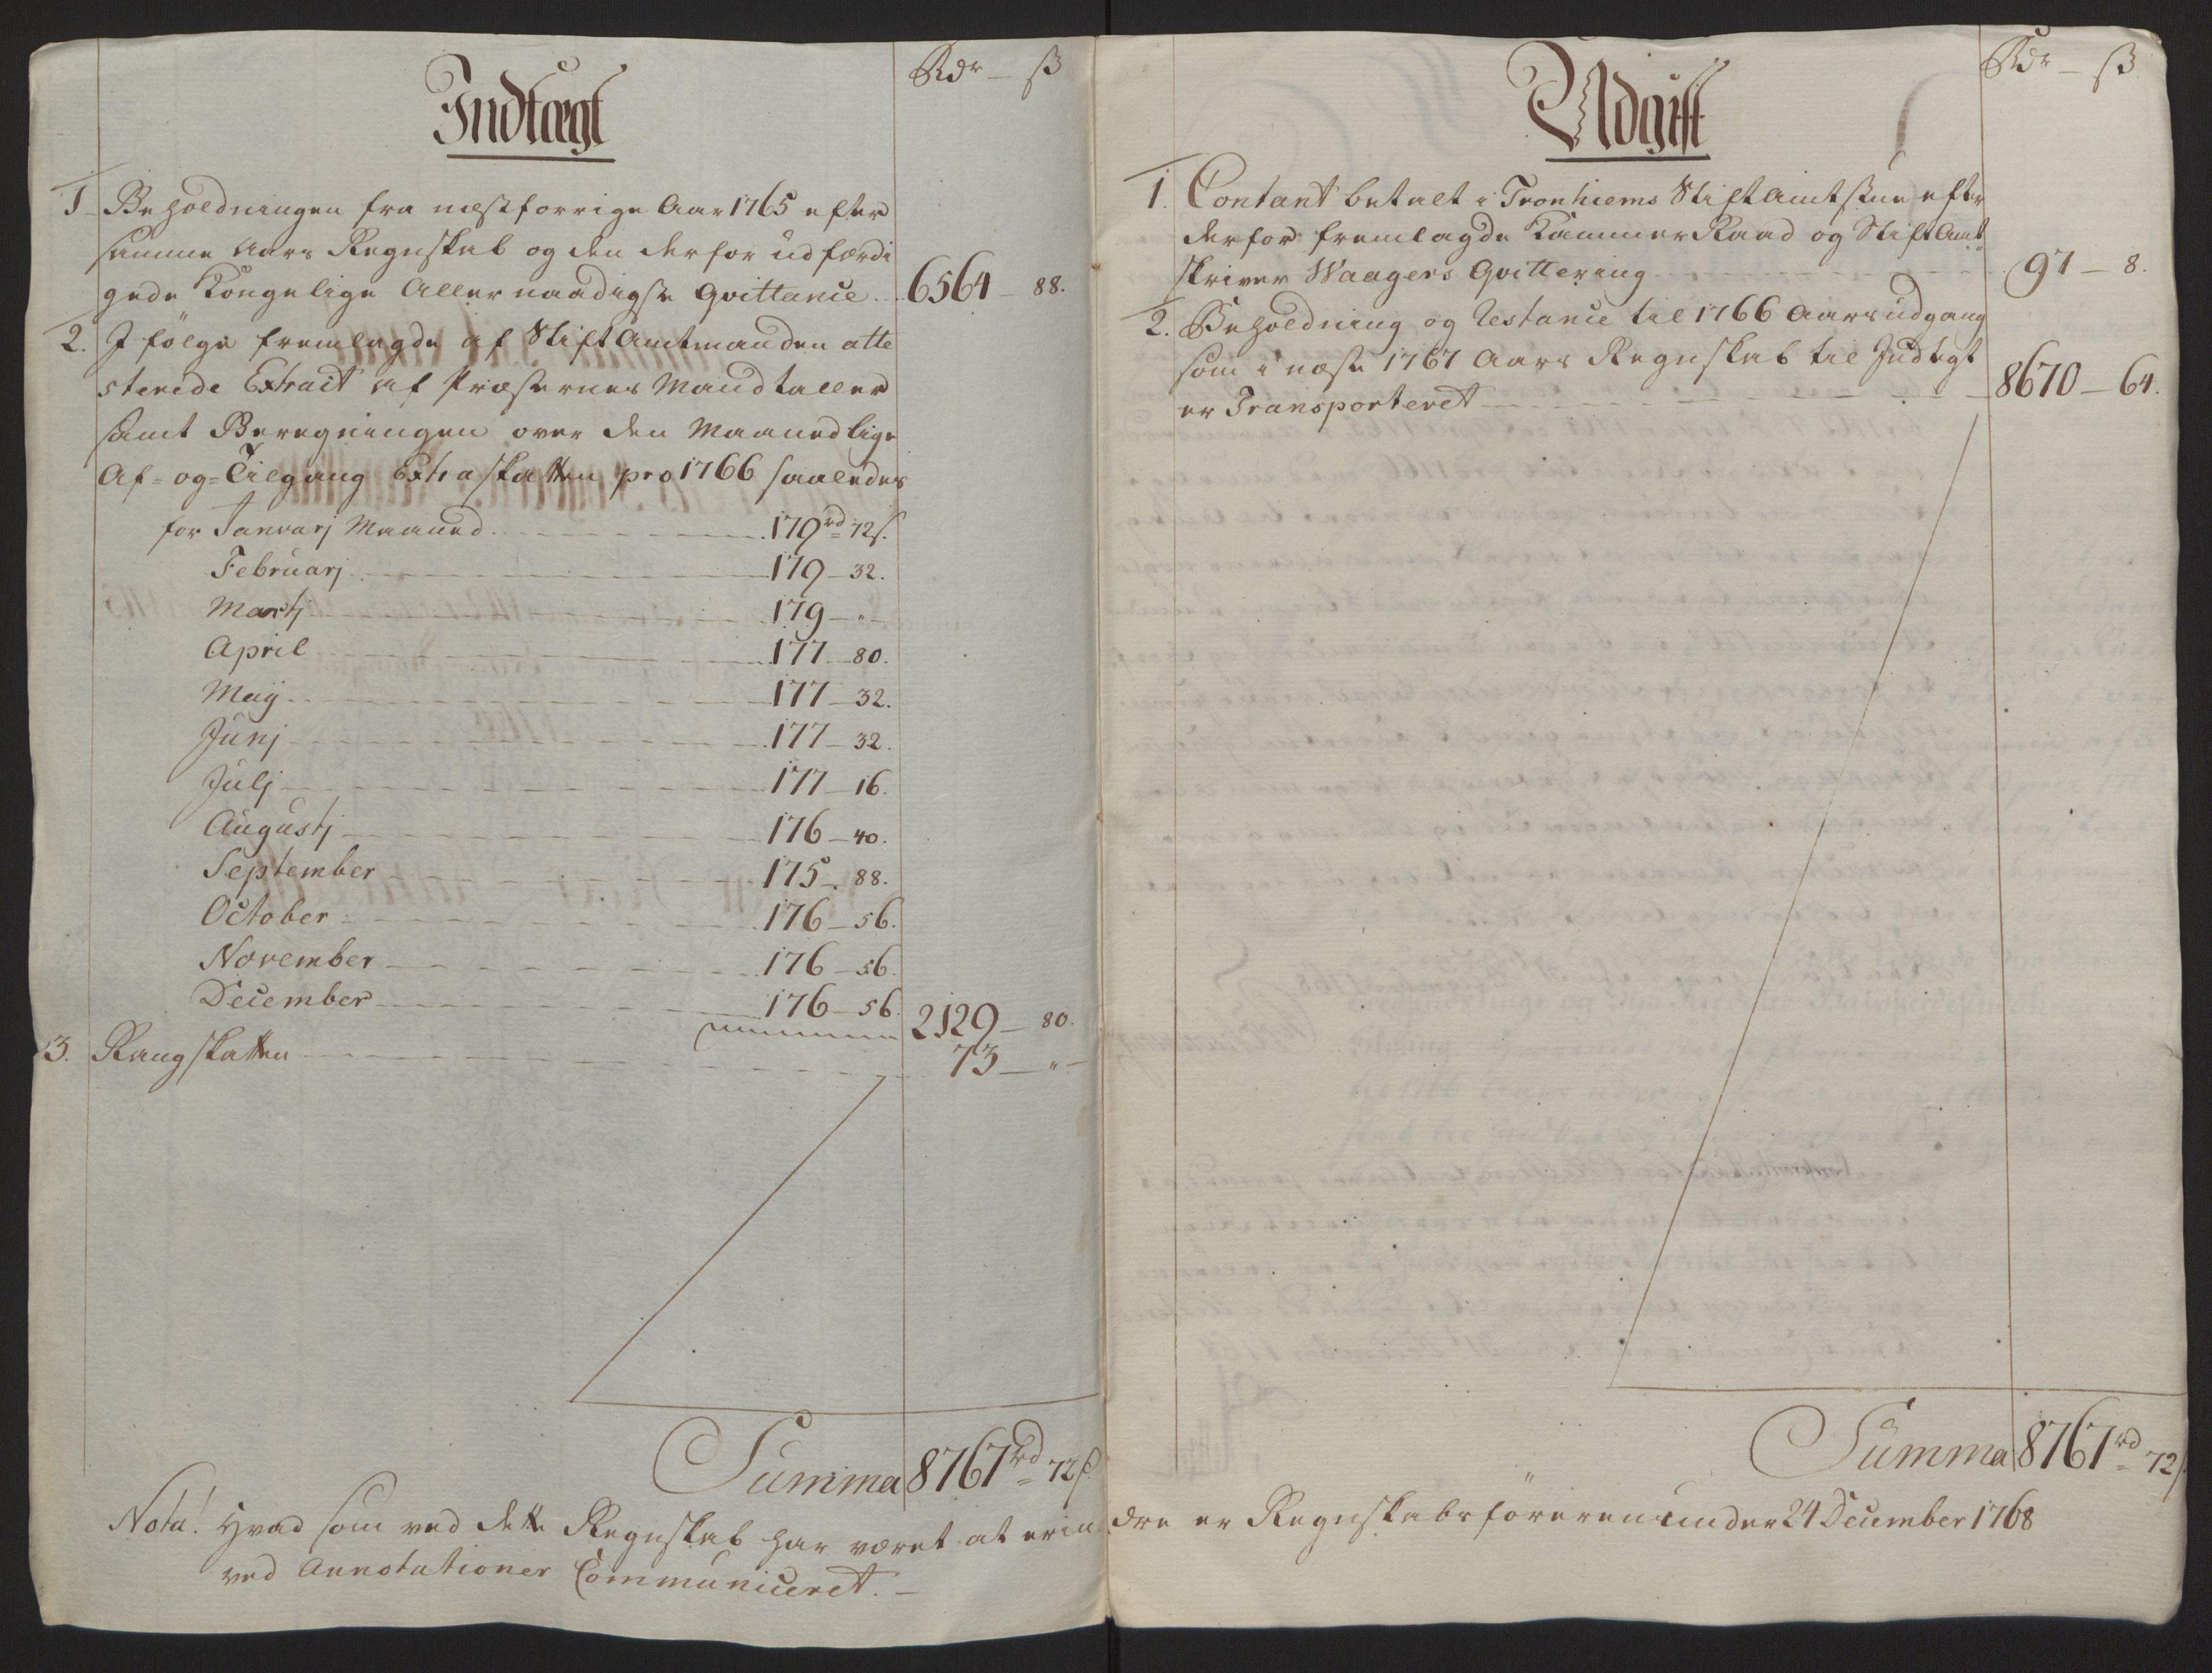 Rdr — ß
Indtægt
1. Beholdningen fra næstforrige Aar 1765 efter
samme Aars Regnskab og den derfor udfærdi
gede Kongelige Allernaadigste Qvittance. 6564 — 88.
2. I følge fremlagde af StiftAmtmanden atte
sterede Extrait af Præsternes Mandtaller
samt Beregningen over den Maanedlige
Af- og Tilgang Extraskatten pro 1766 saaledes
for Januarj Maaned 179 rd 72 s.
Februarj 179 — 32.
Martj 179 — "
April 177 — 80.
Maij 177 — 32.
Junj 177 — 32.
Julj 177 — 16.
Augustj 176 — 40.
September 175 — 88.
October 176 — 56.
November 176 — 56.
December 176 — 56. 2129 — 80.
3. Rangskatten 73 — "
Summa 8767 rd 72 ß
Rdr — ß
Udgift
1. Contant betalt i Tronhiems StiftAmtstue efter
derfor fremlagde KammerRaad og StiftAmt
skriver Waagers Qvittering 97 — 8.
2. Beholdning og Restance til 1766 Aars udgang
som i næste 1767 Aars Regnskab til Indtegt
er Transporteret 8670 — 64.
Summa 8767 rd 72 s.
Nota! Hvad som ved dette Regnskab har været at erindre er Regnskabsføreren under 24 December 1768
ved Annotationer Communiceret. —